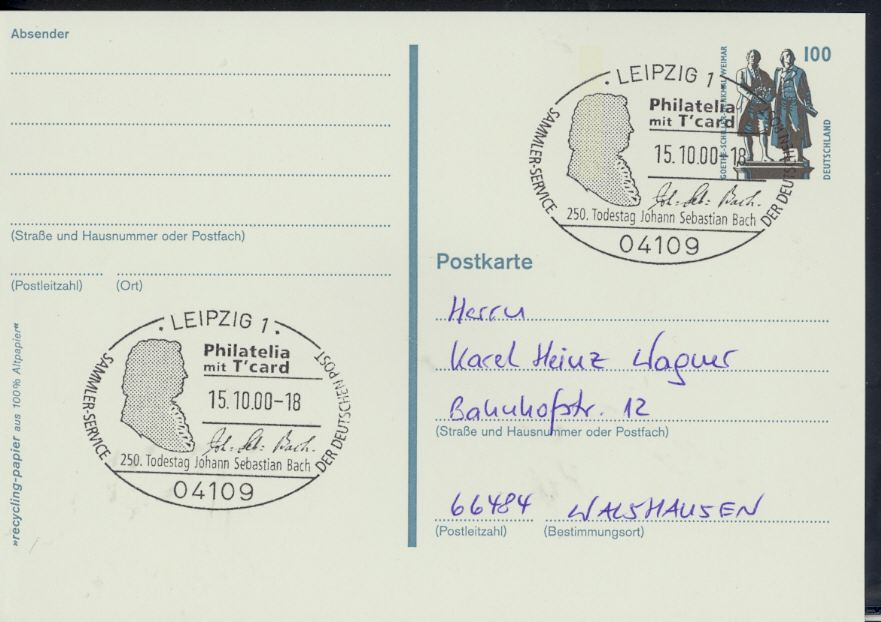 Absender
(Straße und Hausnummer oder Postfach)
(Postleitzahl) (Ort)
»recycling-papier aus 100% Altpapier«
LEIPZIG 1
Philatelia
mit T'card
15.10.00-18
Joh. Seb. Bach.
250. Todestag Johann Sebastian Bach
04109
SAMMLER-SERVICE
DER DEUTSCHEN POST
100
GOETHE-SCHILLER-DENKMAL WEIMAR
DEUTSCHLAND
LEIPZIG 1
Philatelia
mit T'card
15.10.00-18
Joh. Seb. Bach.
250. Todestag Johann Sebastian Bach
04109
SAMMLER-SERVICE
DER DEUTSCHEN POST
Postkarte
Herrn
Karel Heinz Wagner
Bahnhofstr. 12
(Straße und Hausnummer oder Postfach)
66484 WALSHAUSEN
(Postleitzahl) (Bestimmungsort)